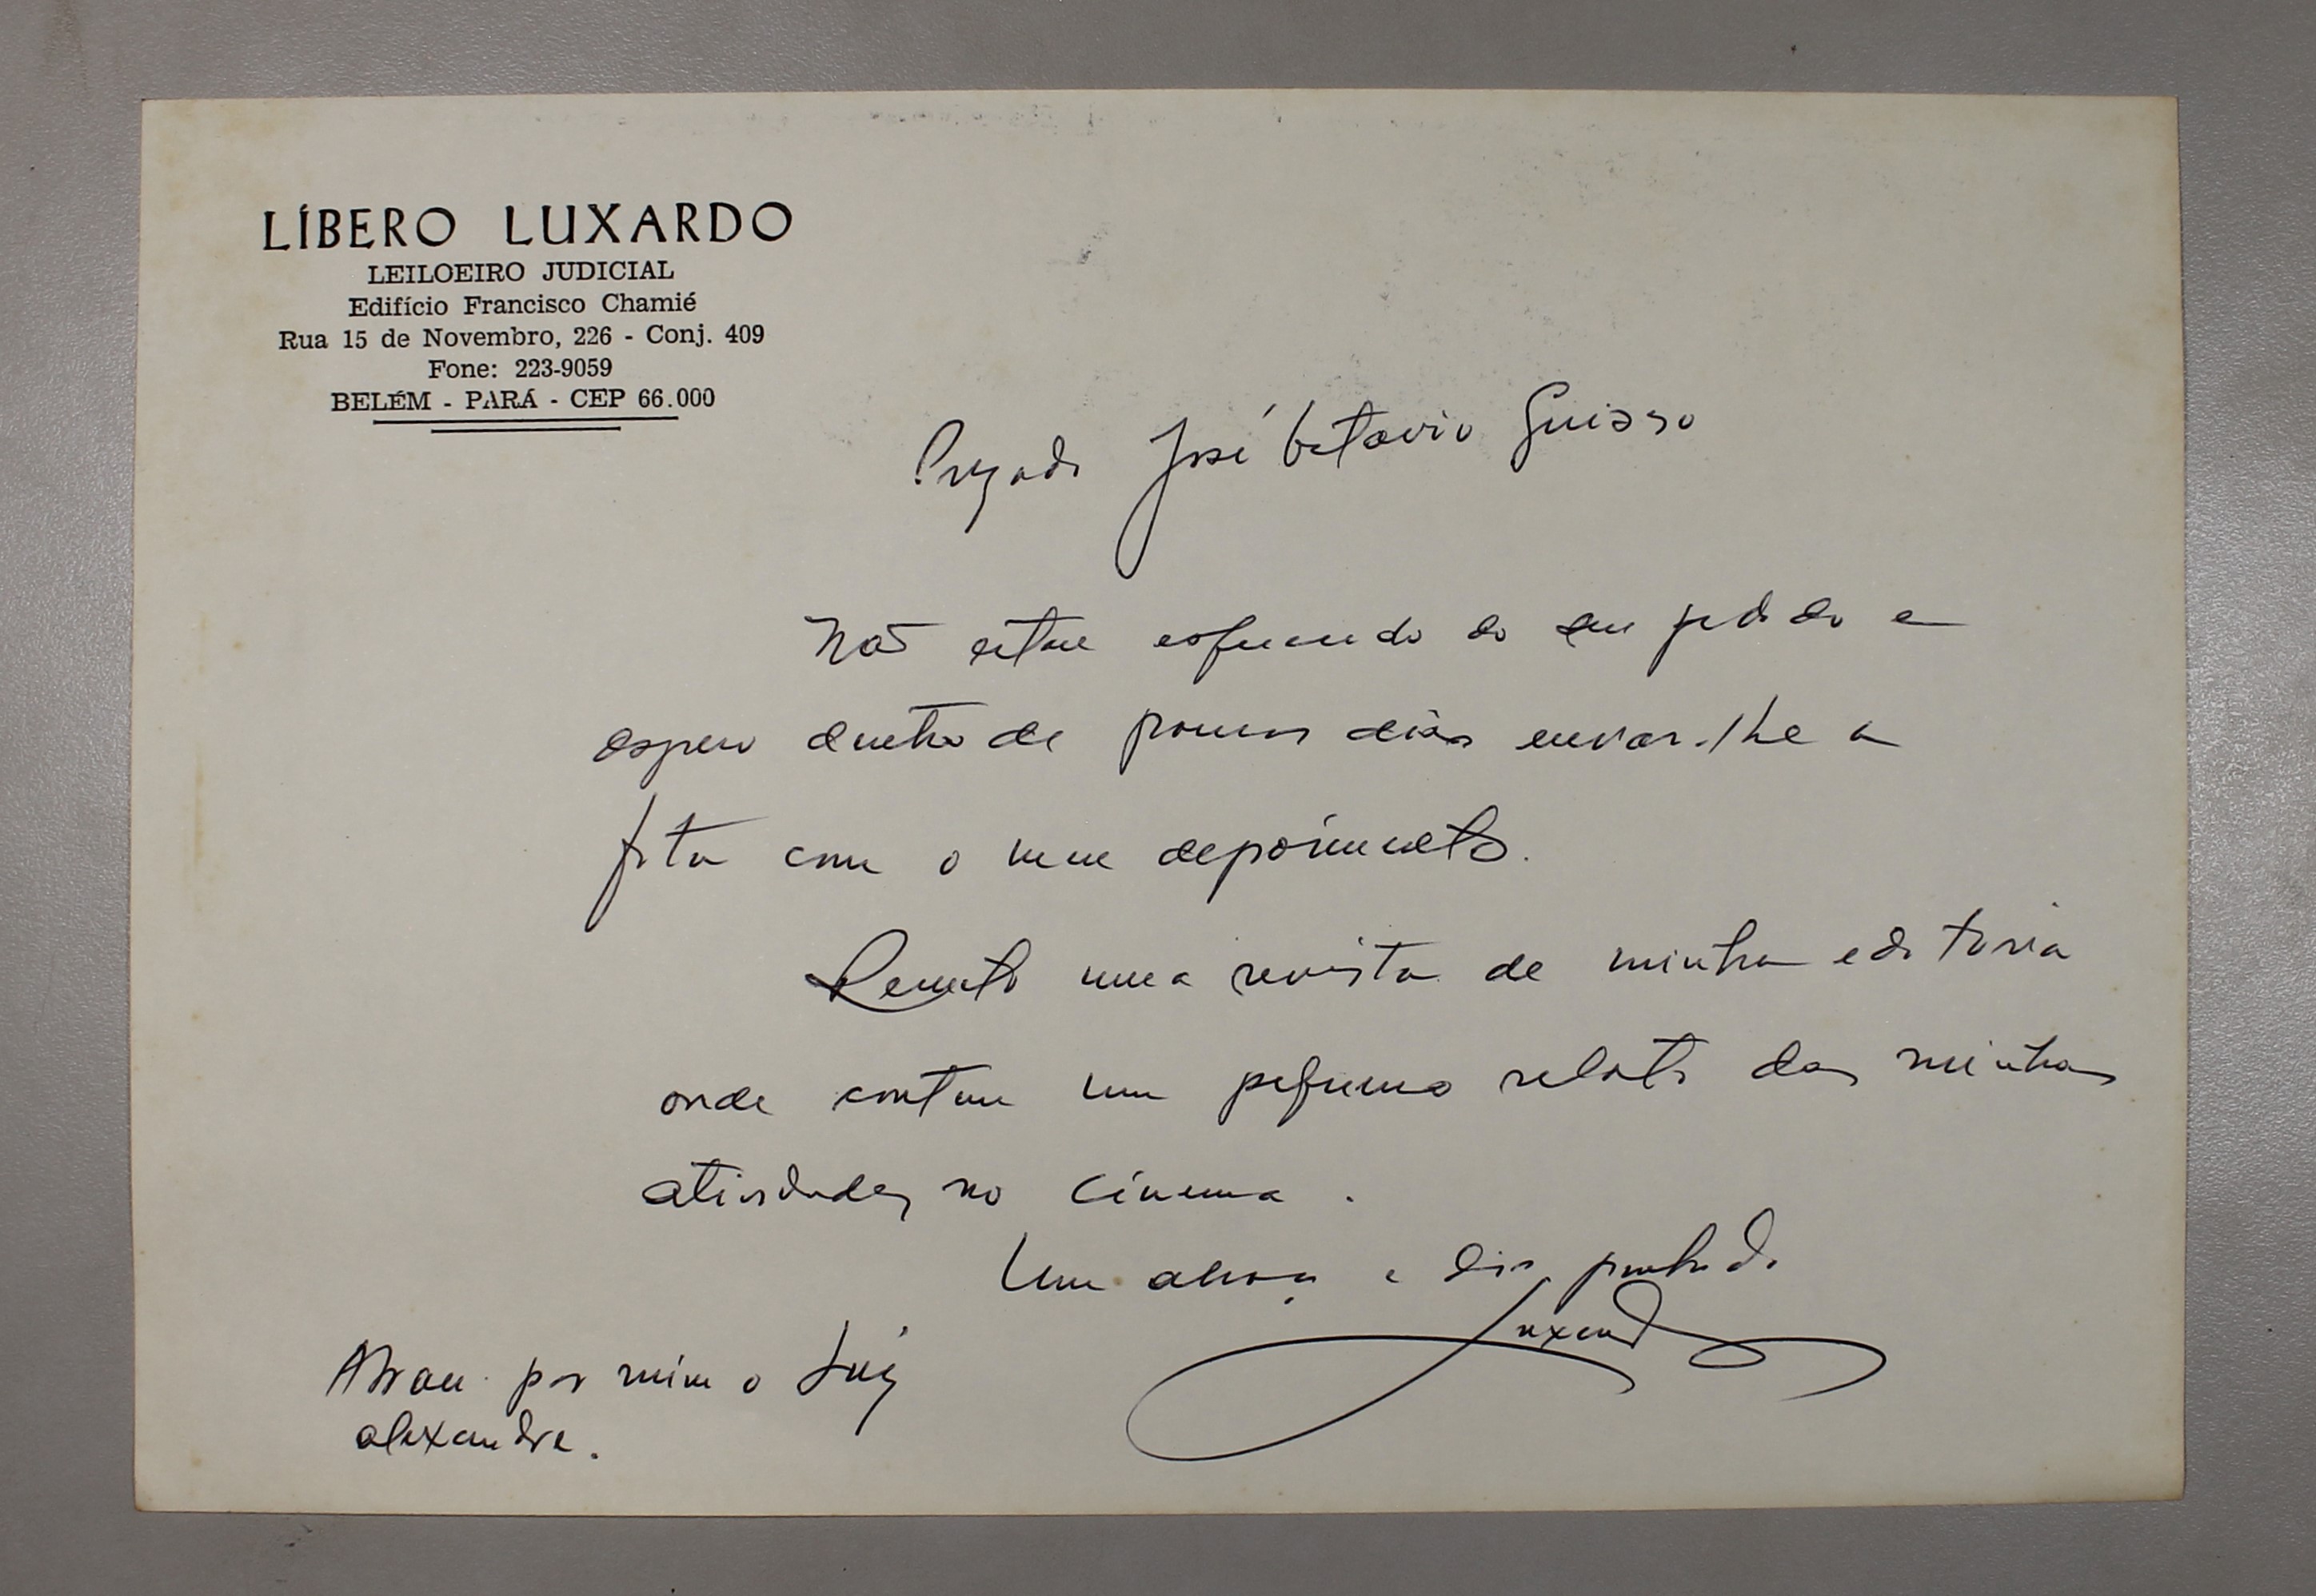 LÍBERO LUXARDO
LEILOEIRO JUDICIAL
Edifício Francisco Chamié
Rua 15 de Novembro, 226 - Conj. 409
Fone: 223-9059
BELÉM - PARÁ - CEP 66.000
Prezado José Octavio Guizzo
Não estou esquecido do seu pedido e
espero dentro de poucos dias enviar-lhe a
fita com o meu depoimento.
Remeto uma revista de minha editoria
onde contem um pequeno relato das minhas
atividades no cinema.
Um abraço e disponha do
Luxardo
Abrace por mim o Luiz
Alexandre.